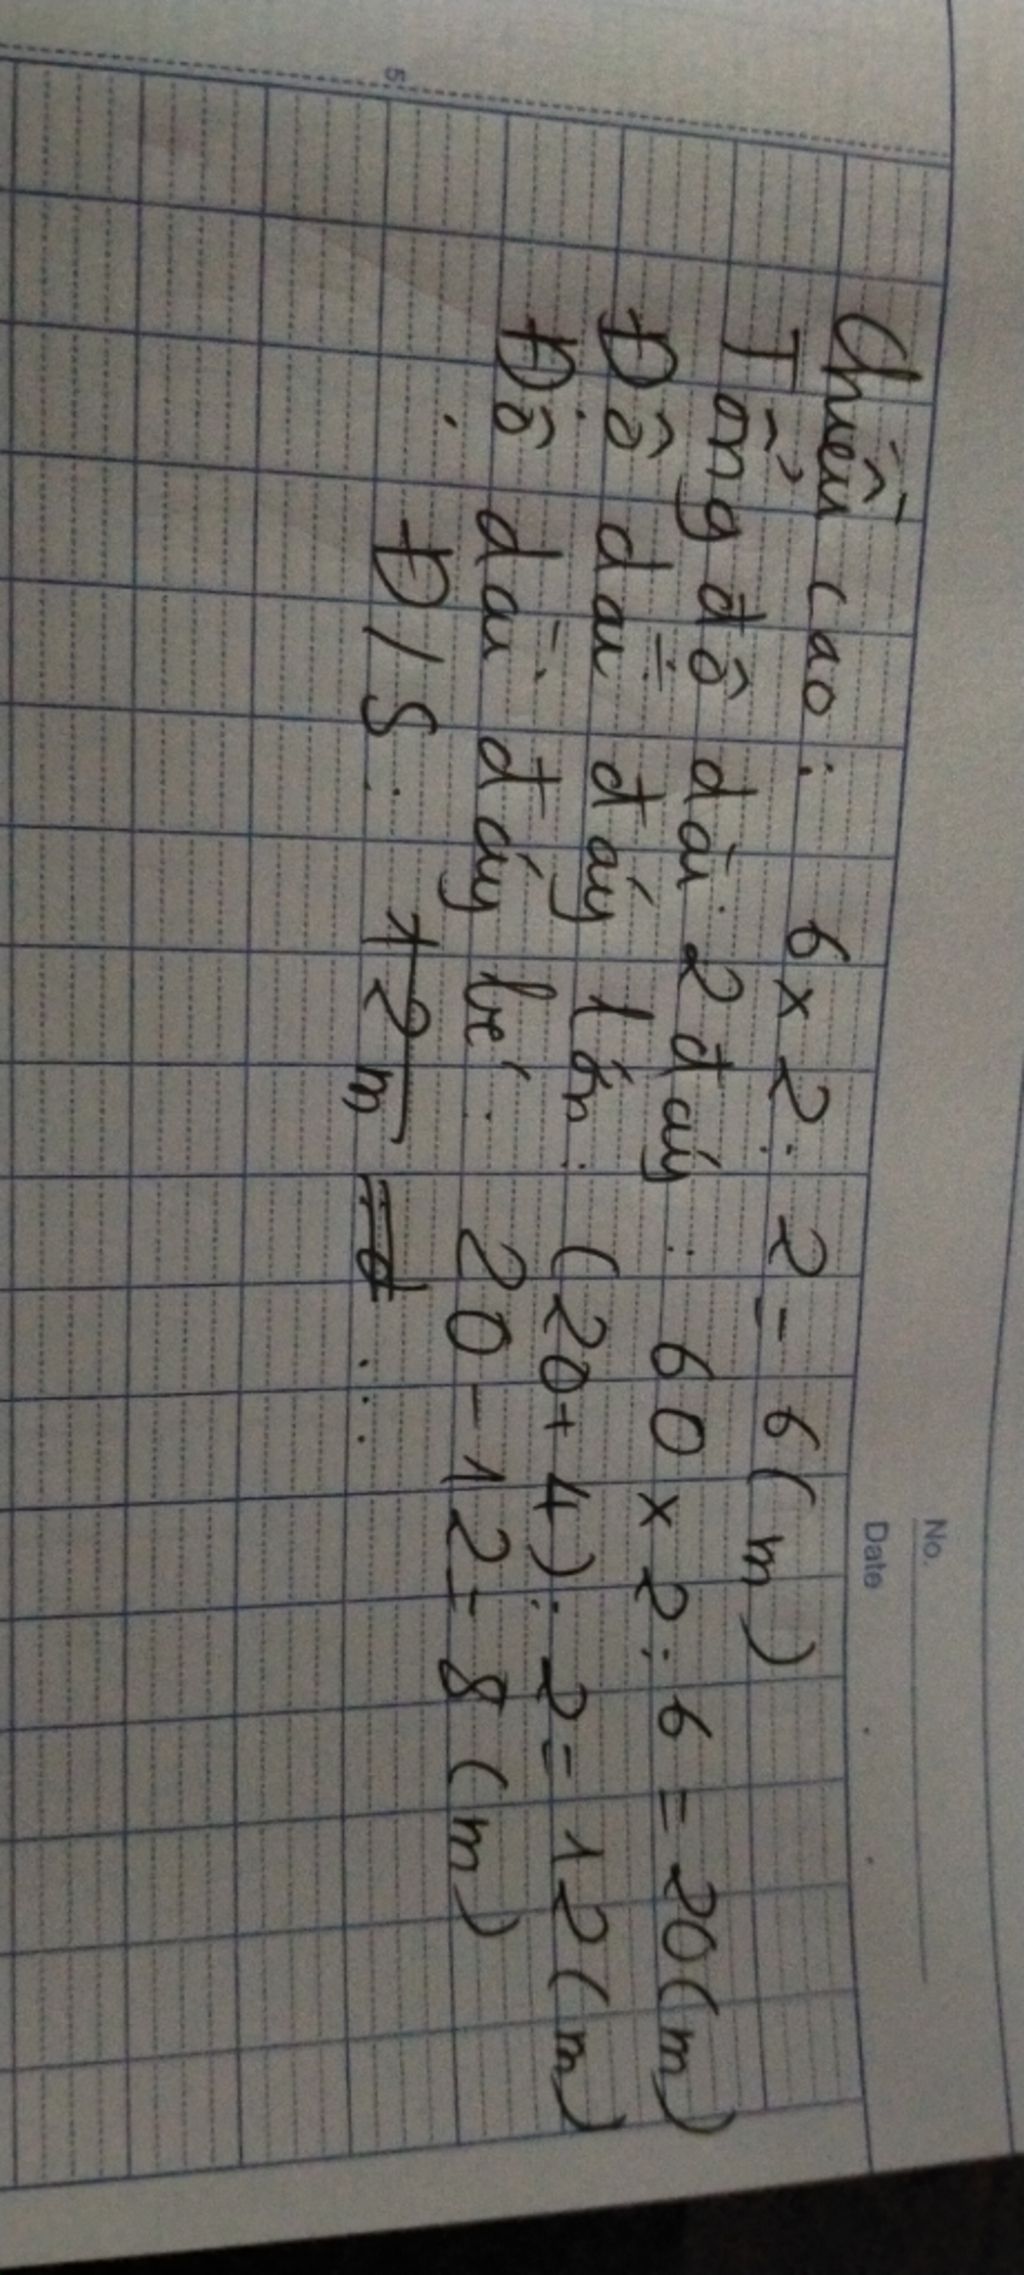 No.
Date
Chiều cao : 6 x 2 : 2 = 6 (m)
Tổng độ dài 2 đáy : 60 x 2 : 6 = 20 (m)
Độ dài đáy lớn : (20 + 4) : 2 = 12 (m)
Độ dài đáy bé : 20 - 12 = 8 (m)
Đ/S : 12m
5